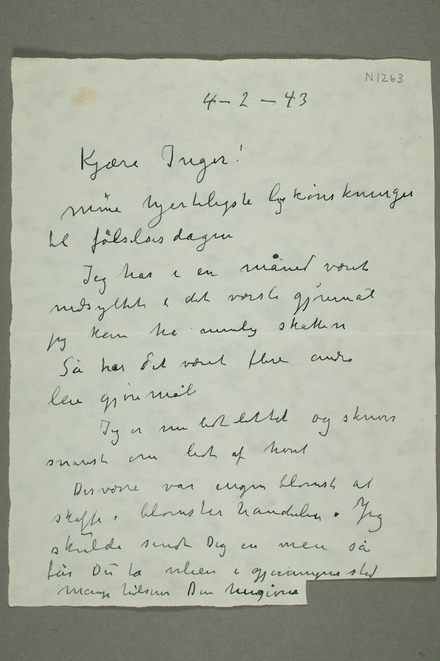 N1263
4-2-43
Kjære Inger!
mine hjerteligste lykønskninger
til fødselsdagen
Jeg har i en måned været
nedsyltet i det værste gjøremål
jeg kan ha nemlig skatten
Så har det været flere andre
leie gjøremål
Jeg er nu lidt lettet og skriver
snarest om lidt af hvert
Desværre var ingen blomst at
skaffe i blomsterhandelen. Jeg
skulde sendt Dig en men så
får Du ta viljen i gjerningens sted
Mange hilsner Din